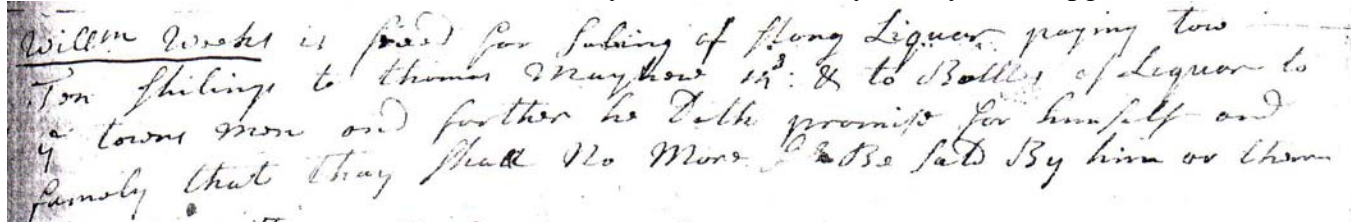 Will^m Weeks is fined for Saling of Strong Liquor paying tow
Ten Shilings to thomas Mayhew &: & to Bottles of Liquor to
y^e towns men and further he Doth promise for himself and
famely that thay Shall No More Be Sald By him or them